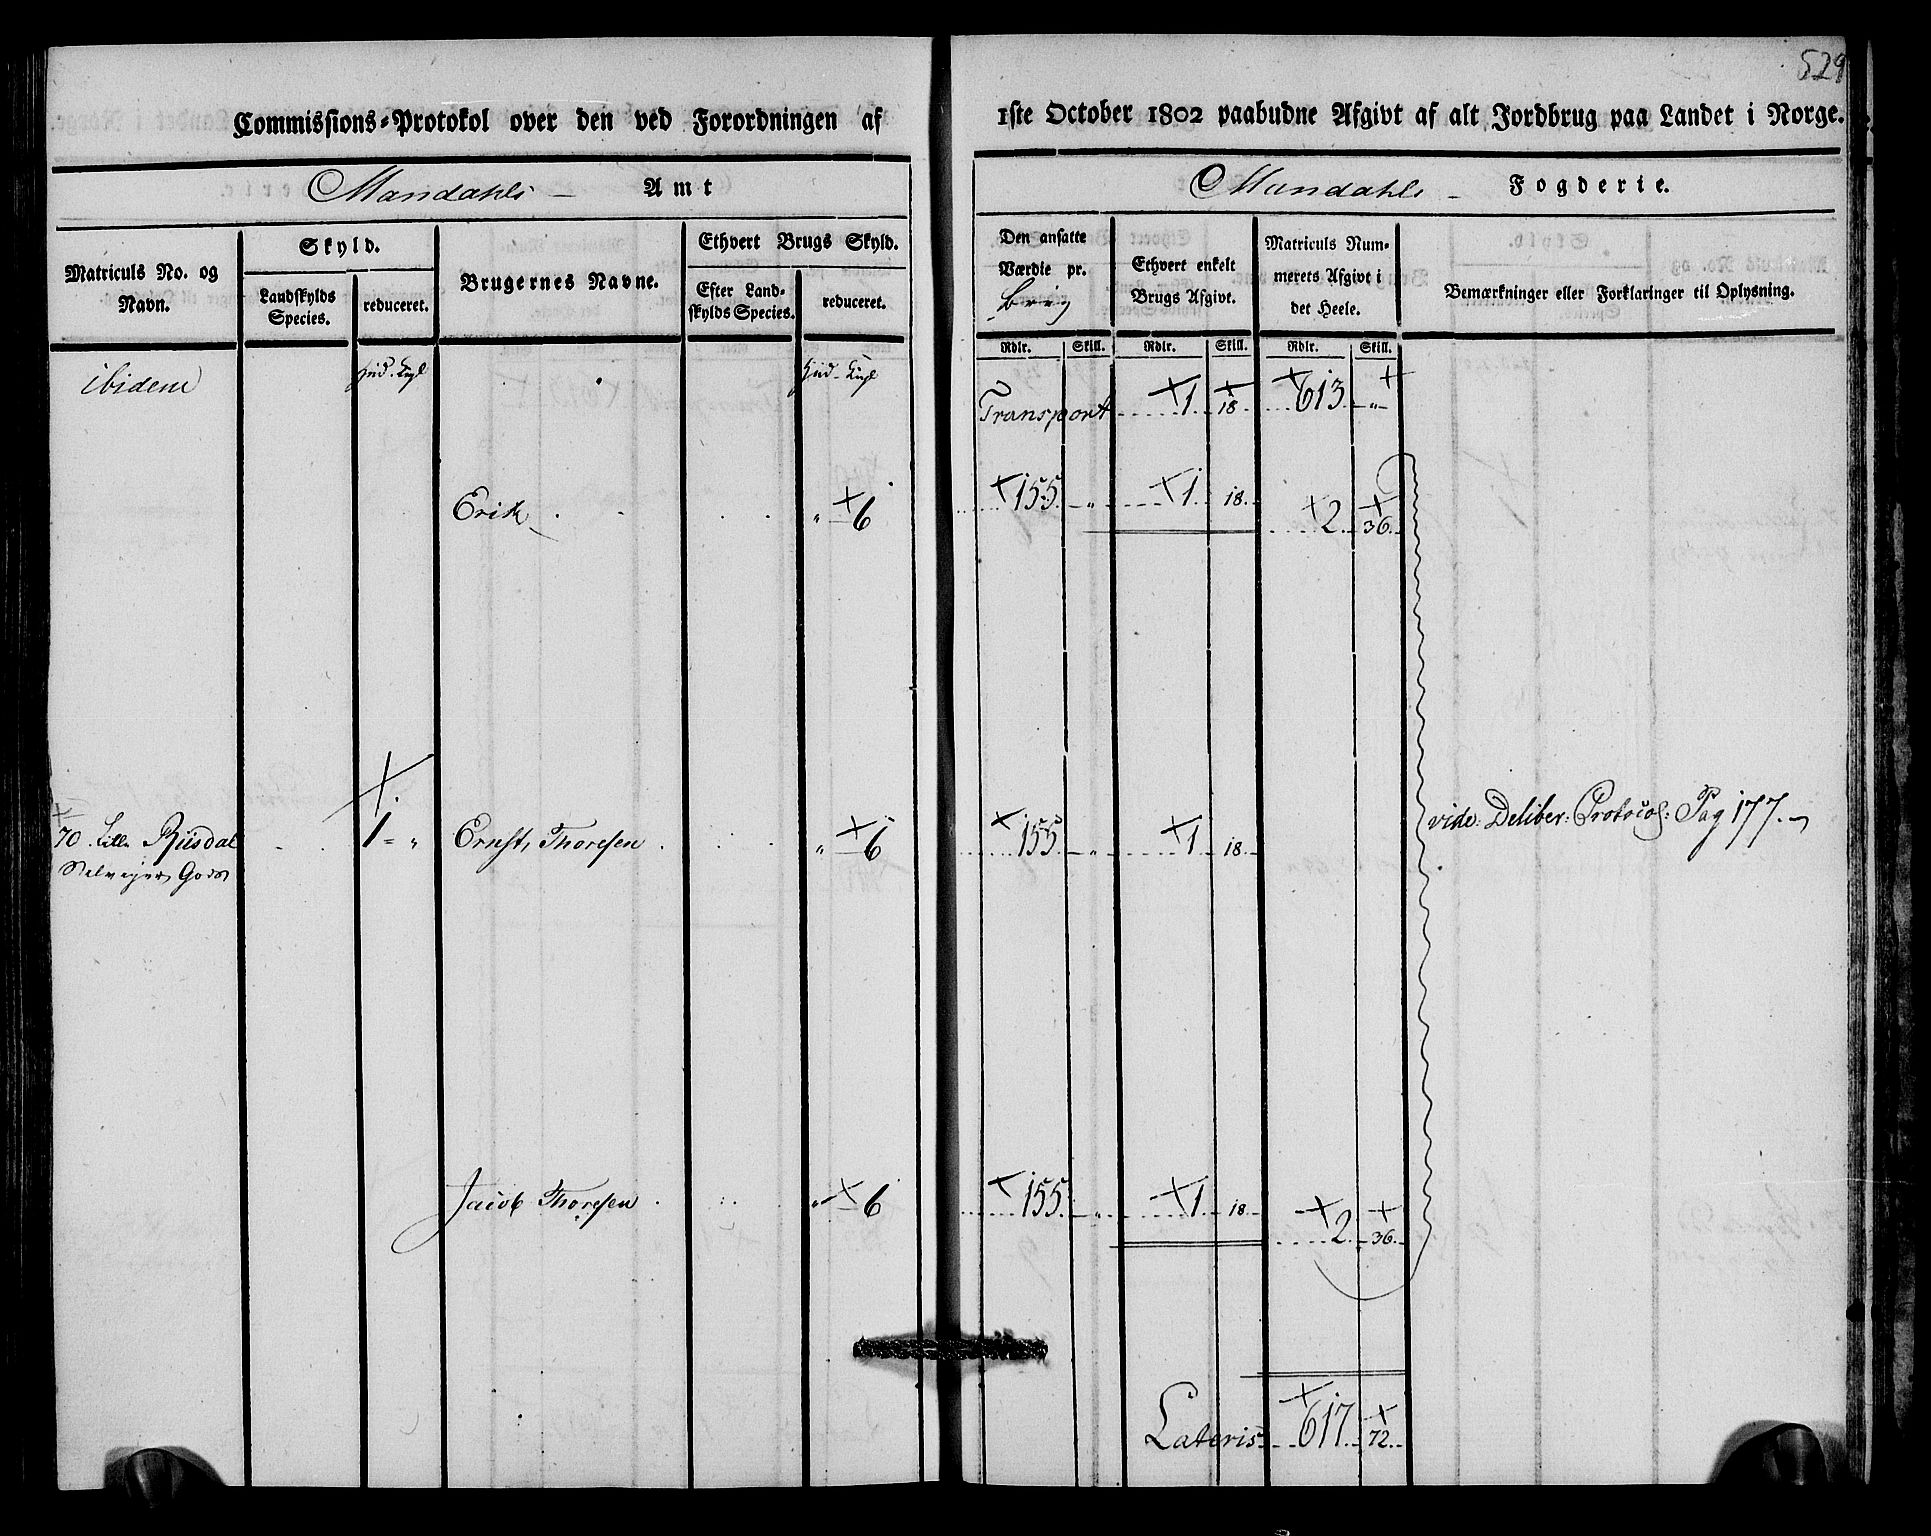 529
Commissions-Protokol over den ved Forordningen af 1ste October 1802 paabudne Afgivt af alt Jordbrug paa Landet i Norge.
Mandahls Amt
Mandahls Fogderie.
Matriculs No. og Navn.
Skyld.
Landskylds Species.
reduceret.
Brugernes Navne.
Ethvert Brugs Skyld.
Efter Landskylds Species.
reduceret.
Den ansatte Værdie pr. Brug
Ethvert enkelt Brugs Afgivt.
Matriculs Nummerets Afgivt i det Heele.
Bemærkninger eller Forklaringer til Oplysning.
Rdlr. Skill. Rdlr. Skill. Rdlr. Skill.
ibidem
Transport 1 18 613 "
Erik " 6 155 " 1 18 2 36
70 Lille Riisdal 1 " Ernst Thoresen " 6 155 " 1 18 vide: Deliber: Protocol: Pag 177.
Selveyer Gods
Jacob Thoresen " 6 155 " 1 18 2 36
Lateris 617 72